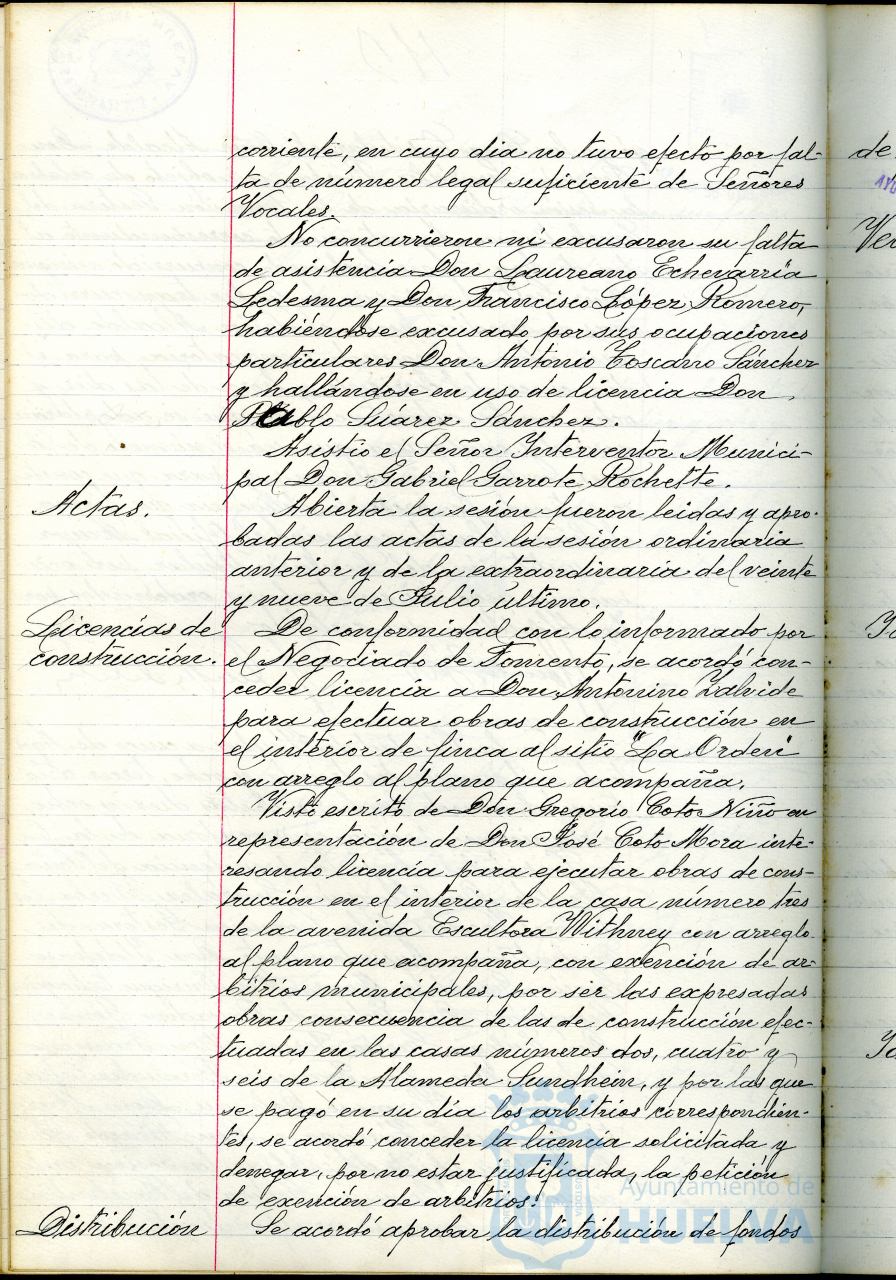 corriente, en cuyo dia no tuvo efecto por fal-
ta de número legal suficiente de Señores
Vocales.
No concurrieron ni excusaron su falta
de asistencia Don Laureano Echevarría
Ledesma y Don Francisco López Romero,
habiéndose excusado por sus ocupaciones
particulares Don Antonio Toscano Sánchez
y hallándose en uso de licencia Don
Pablo Suárez Sánchez.
Asistió el Señor Interventor Munici-
pal Don Gabriel Garrote Rochette.
Actas.
Abierta la sesión fueron leidas y apro-
badas las actas de la sesión ordinaria
anterior y de la extraordinaria del veinte
y nueve de Julio último.
Licencias de
construcción.
De conformidad con lo informado por
el Negociado de Fomento, se acordó con-
ceder licencia a Don Antonino Zalvide
para efectuar obras de construcción en
el interior de finca al sitio "La Orden"
con arreglo al plano que acompaña.
Visto escrito de Don Gregorio Coto Niño en
representación de Don José Coto Mora inte-
resando licencia para ejecutar obras de cons-
trucción en el interior de la casa número tres
de la avenida Escultora Withney con arreglo
al plano que acompaña, con exención de ar-
bitrios municipales, por ser las expresadas
obras consecuencia de las de construcción efec-
tuadas en las casas números dos, cuatro y
seis de la Alameda Sundhein, y por las que
se pagó en su día los arbitrios correspondien-
tes, se acordó conceder la licencia solicitada y
denegar, por no estar justificada, la petición
de exención de arbitrios.
Distribución
Se acordó aprobar la distribución de fondos
Ayuntamiento de
HUELVA
de